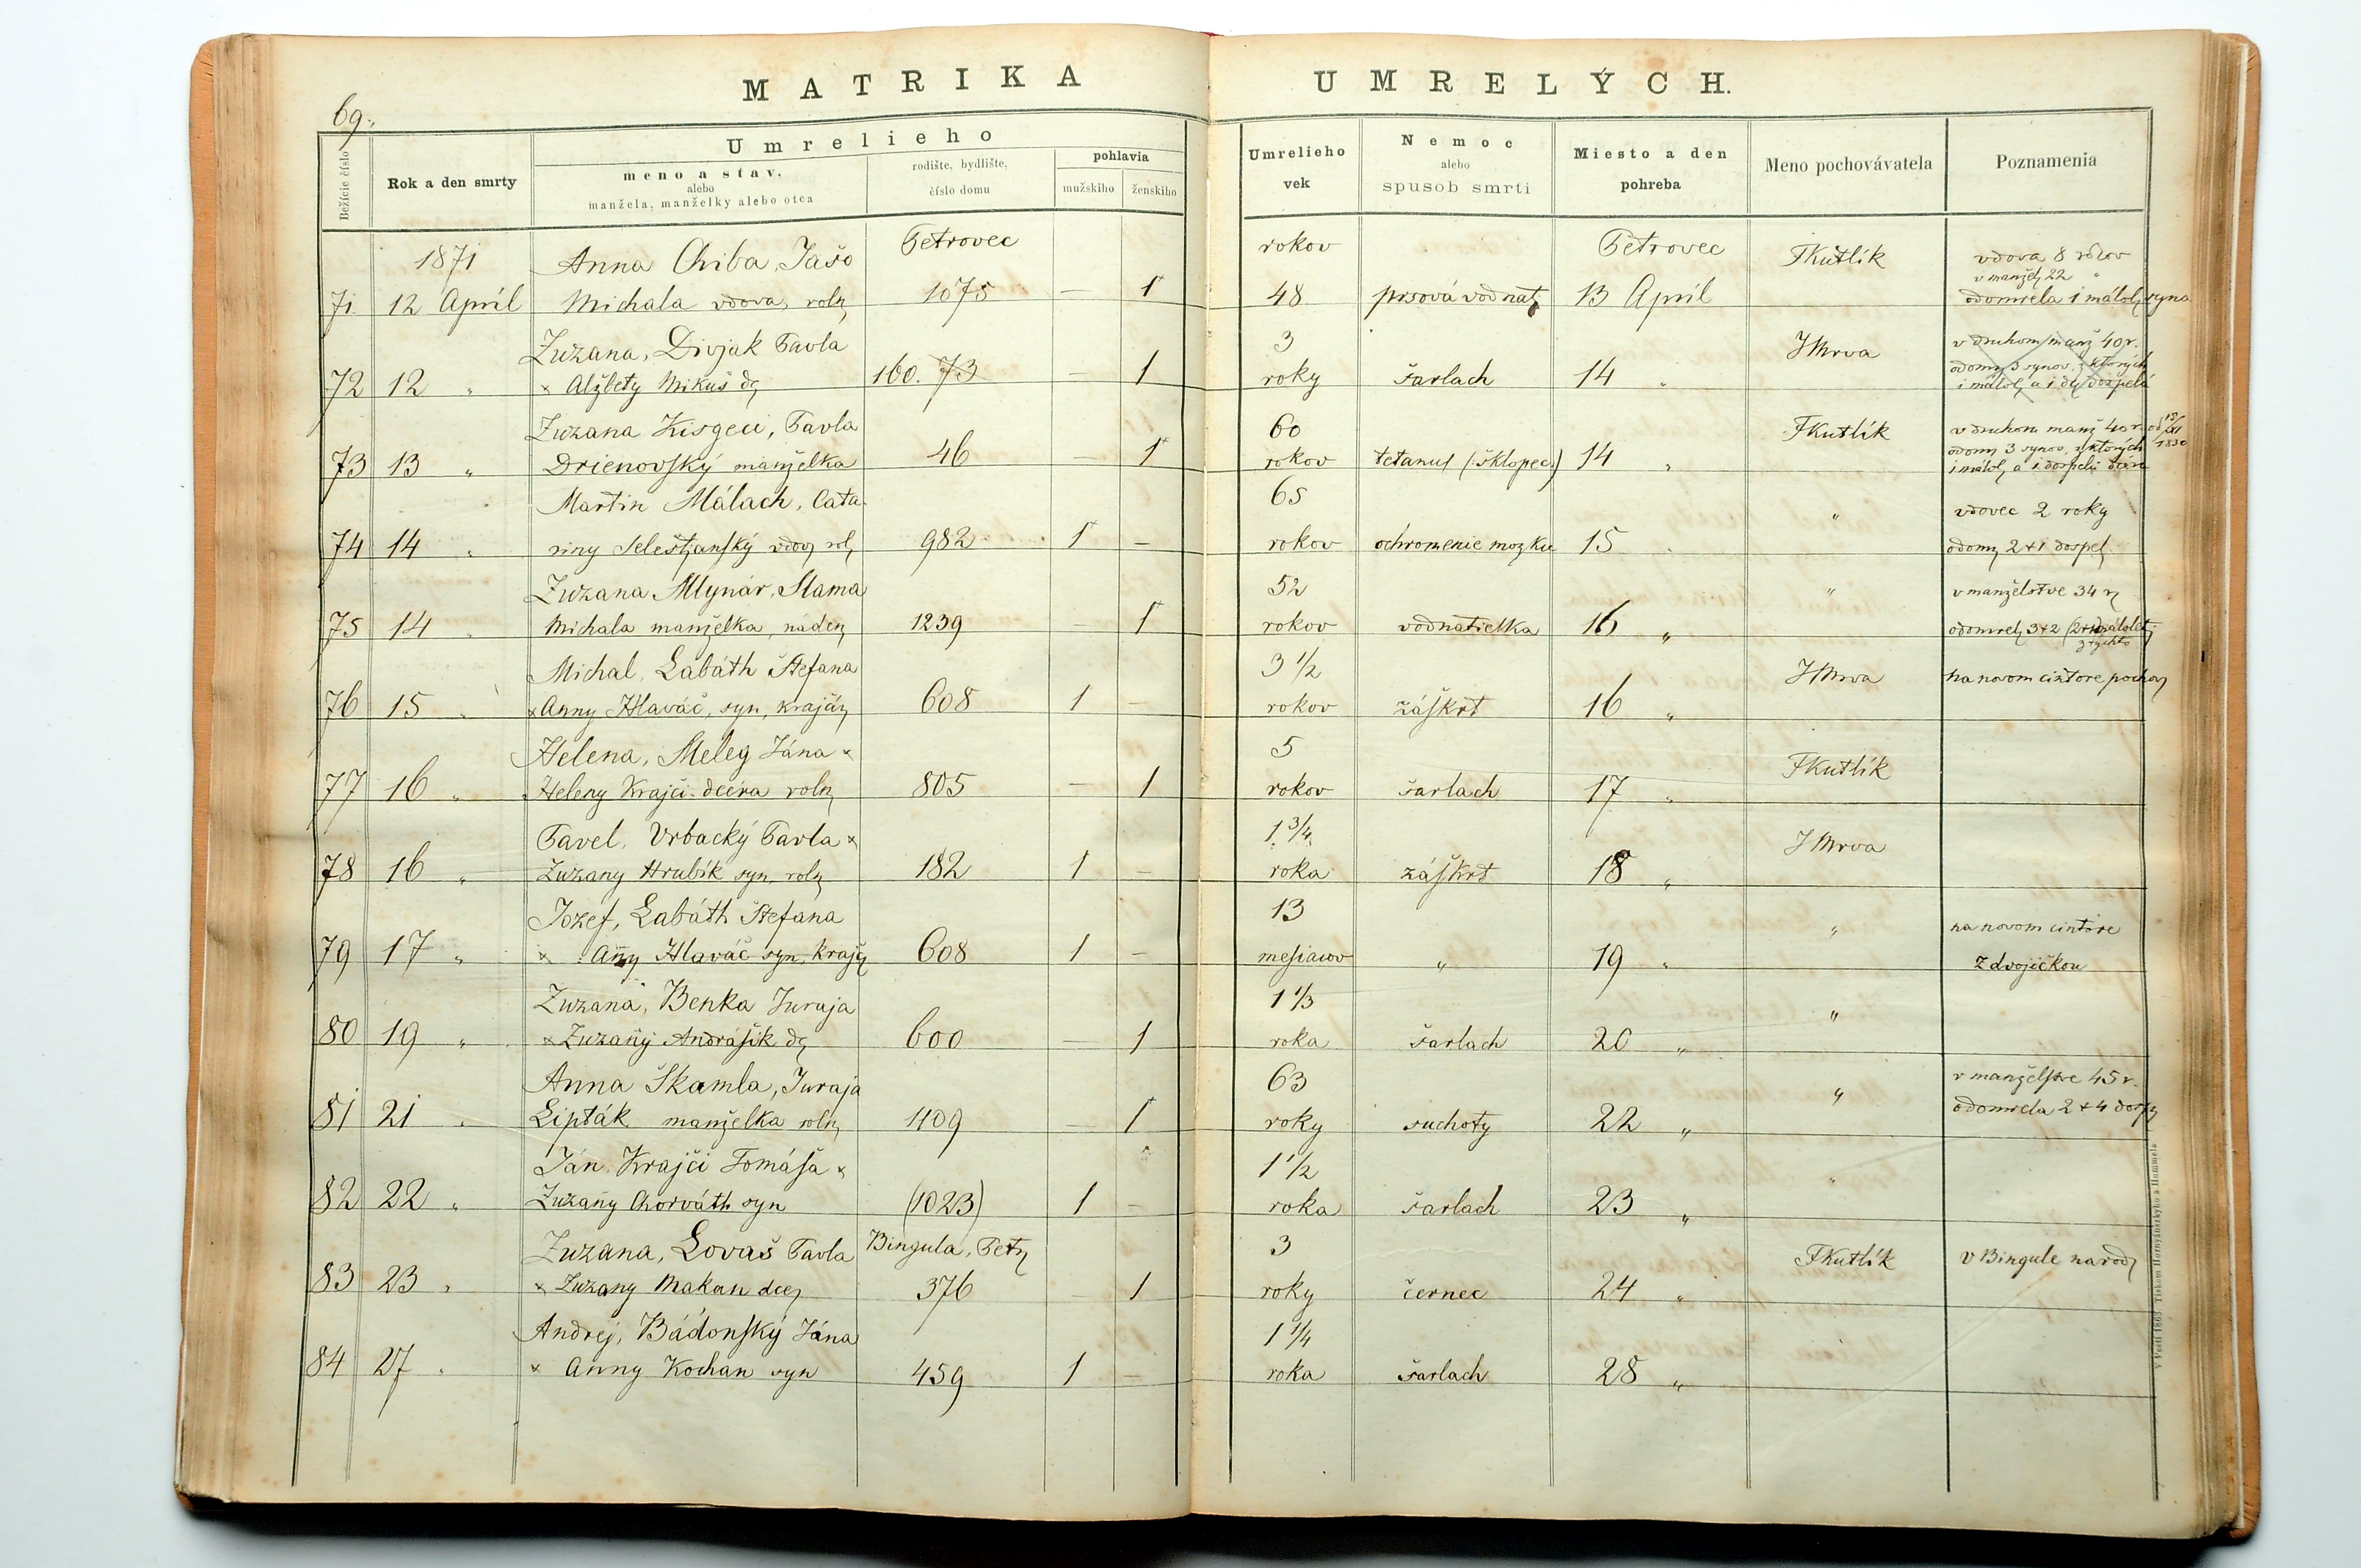 MATRIKA UMRELÝCH.
69.
Bežície číslo
Rok a den smrty
Umrelieho
meno a stav,
alebo
manžela, manželky alebo otca
rodište, bydlište,
číslo domu
pohlavia
mužskiho
ženskiho
Umrelieho
vek
Nemoc
alebo
spusob smrti
Miesto a den
pohreba
Meno pochovávatela
Poznamenia
1871 Anna Chiba, Jašo Petrovec rokov Petrovec FKutlík vdova 8 rokov
v manžel 22 "
71. 12 Apríl Michala vdova, roln 1075 — 1 48 prsová vodnat 13 Apríl odomrela 1 málol syna
Zuzana, Divjak Pavla 3 JMrva v druhom manž 40 r.
odom 3 synov, z ktorých
72 12 " × Alžbety Mikuš dc 160. 73 — 1 roky šarlach 14 " 1 málol a 1 dc dospelá
Zuzana Kisgeci, Pavla 60 FKutlík v druhom manž 40 r. od 13/11 1830
odom 3 synov, z ktorých
73 13 " Drienovský manželka 46 — 1 rokov tetanus (:šklopec:) 14 " 1 málol a 1 dospelá dcéra
Martin Málach, Cata- 65 " vdovec 2 roky
74 14 " riny Selešťjanský vdov rol 982 1 — rokov ochromenie mozku 15 " odom 2+1 dospel
Zuzana Mlynár, Slama 52 " v manželstve 34 r
75 14 " Michala manželka, náden 1239 — 1 rokov vodnatielka 16 " odomrel 3+2
Michal, Labáth Štefana 3 1/2 JMrva na novom cintore pochov
76 15 " × Anny Hlaváč, syn, krajčír 608 1 — rokov záškrt 16 "
Helena, Meleg Jána × 5 FKutlík
77 16 " Heleny Krajči dcéra roln 805 — 1 rokov šarlach 17 "
Pavel, Vrbacký Pavla × 1 3/4 JMrva
78 16 " Zuzany Hrubík syn, roln 182 1 — roka záškrt 18 "
Jozef, Labáth Štefana 13 " na novom cintore
79 17 " × Anny Hlaváč syn, krajč 608 1 — mesiacov " 19 " z dvojičkou
Zuzana, Benka Juraja 1 1/3 "
80 19 " × Zuzany Andrášik dc 600 — 1 roka šarlach 20 "
Anna Škamla, Juraja 63 " v manželstve 45 r.
81 21 " Lipták manželka roln 1109 — 1 roky suchoty 22 " odomrela 2+4 dosp
Ján Krajči Tomáša × 1 1/2 "
82 22 " Zuzany Chorváth syn (1023) 1 — roka šarlach 23 "
Zuzana, Lovaš Pavla Bingula, Petr 3 FKutlík v Bingule narod
83 23 " × Zuzany Makan dcer 376 1 roky černec 24 "
Andrej, Bádonský Jána 1 1/4
84 27 " × Anny Kochan syn 459 1 — roka šarlach 28 "
V Pešti 1865. Tlačou Hornyánszkyho a Hummela